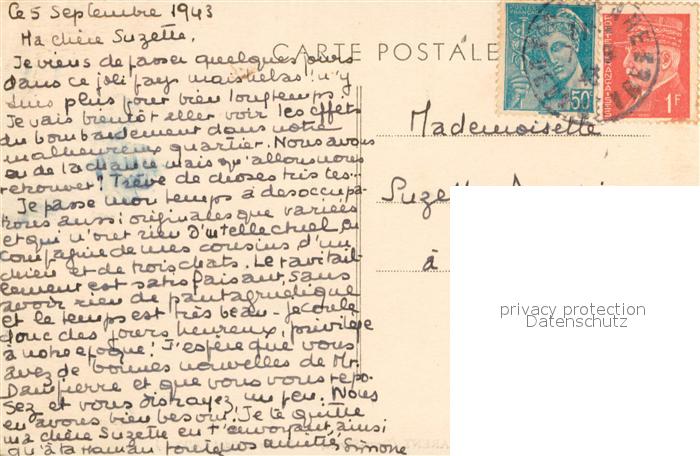 Ce 5 Septembre 1943
Ma chère Suzette,
CARTE POSTALE
Je viens de passer quelques jours
dans ce joli pays mais hélas! n'y
suis plus pour bien longtemps!
Je vais bientôt aller voir les effets
du bombardement dans notre
malheureux quartier. Nous avons
eu de la chance mais qu'allons nous
retrouver! Trêve de choses tristes...
Je passe mon temps à des occupa-
tions aussi originales que variées
et qui n'ont rien d'intellectuel en
compagnie de mes cousins d'un
chien et de trois chats. Le ravitail-
lement est satisfaisant, sans
avoir rien de pantagruélique
et le temps est très beau - Je coule
donc des jours heureux, privilège
à notre époque! J'espère que vous
avez de bonnes nouvelles de Mr.
Dampierre et que vous vous repo-
sez et vous distrayez un peu. Nous
en avons bien besoin! Je te quitte
ma chère Suzette en t'envoyant, ainsi
qu'à ta Maman quelques amitiés Simone
Mademoiselle
Suzette
à
50
1F
privacy protection
Datenschutz